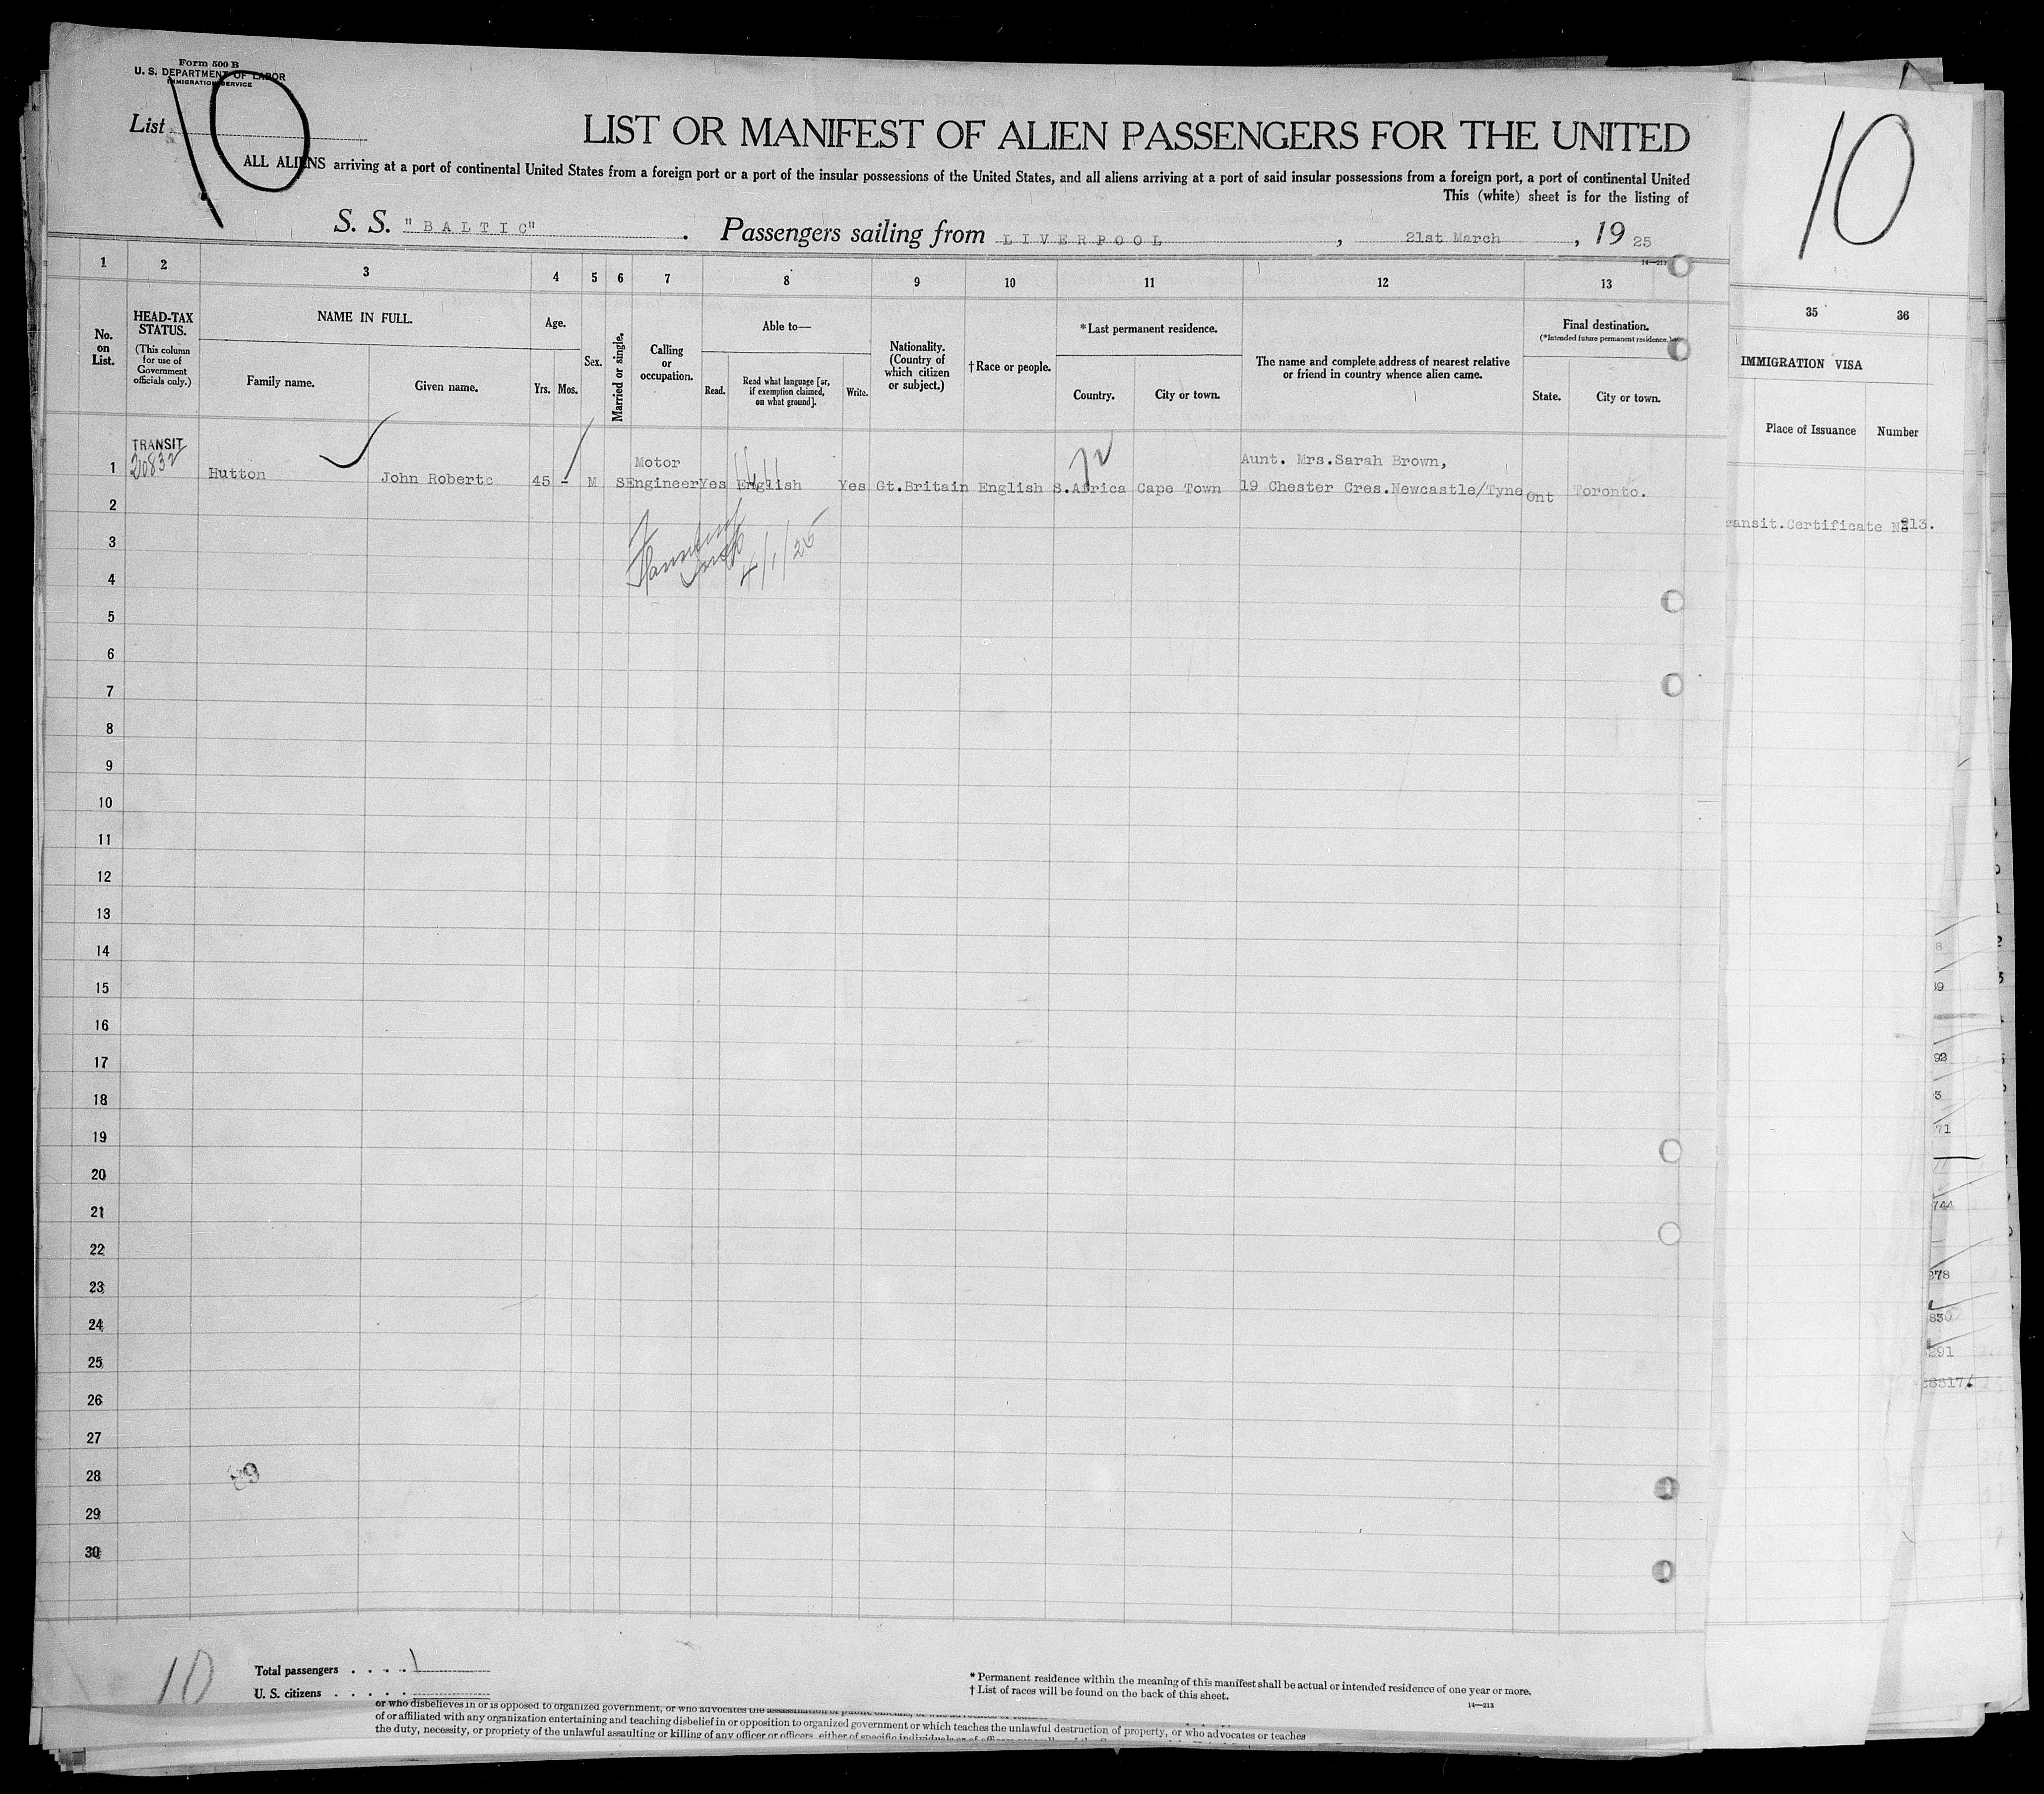 Form 500 B
U. S. DEPARTMENT OF LABOR
IMMIGRATION SERVICE
List 10
10
LIST OR MANIFEST OF ALIEN PASSENGERS FOR THE UNITED
ALL ALIENS arriving at a port of continental United States from a foreign port or a port of the insular possessions of the United States, and all aliens arriving at a port of said insular possessions from a foreign port, a port of continental United
This (white) sheet is for the listing of
S. S. "BALTIC". Passengers sailing from LIVERPOOL, 21st March, 19 25
14—213
1 2 3 4 5 6 7 8 9 10 11 12 13 35 36
No. on List.
HEAD-TAX STATUS.
(This column for use of Government officials only.)
NAME IN FULL.
Family name. Given name.
Age.
Yrs. Mos.
Sex.
Married or single.
Calling or occupation.
Able to—
Read. Read what language [or, if exemption claimed, on what ground]. Write.
Nationality. (Country of which citizen or subject.)
† Race or people.
* Last permanent residence.
Country. City or town.
The name and complete address of nearest relative or friend in country whence alien came.
Final destination.
(* Intended future permanent residence.)
State. City or town.
IMMIGRATION VISA
Place of Issuance Number
TRANSIT Motor Aunt. Mrs.Sarah Brown,
1 Hutton John Robert 45 - M S Engineer Yes English Yes Gt.Britain English S.Africa Cape Town 19 Chester Cres.Newcastle/Tyne Ont Toronto.
ransit.Certificate No 213.
4/1/25
2
3
4
5
6
7
8
9
10
11
12
13
14
15
16
17
18
19
20
21
22
23
24
25
26
27
28
29
30
89
10
Total passengers . . . . 1
U. S. citizens . . . . .
* Permanent residence within the meaning of this manifest shall be actual or intended residence of one year or more.
† List of races will be found on the back of this sheet.
14—213
or who disbelieves in or is opposed to organized government, or who advocates the assassination of public officials,
of or affiliated with any organization entertaining and teaching disbelief in or opposition to organized government or which teaches the unlawful destruction of property, or who advocates or teaches
the duty, necessity, or propriety of the unlawful assaulting or killing of any officer or officers, either of specific individuals or of officers